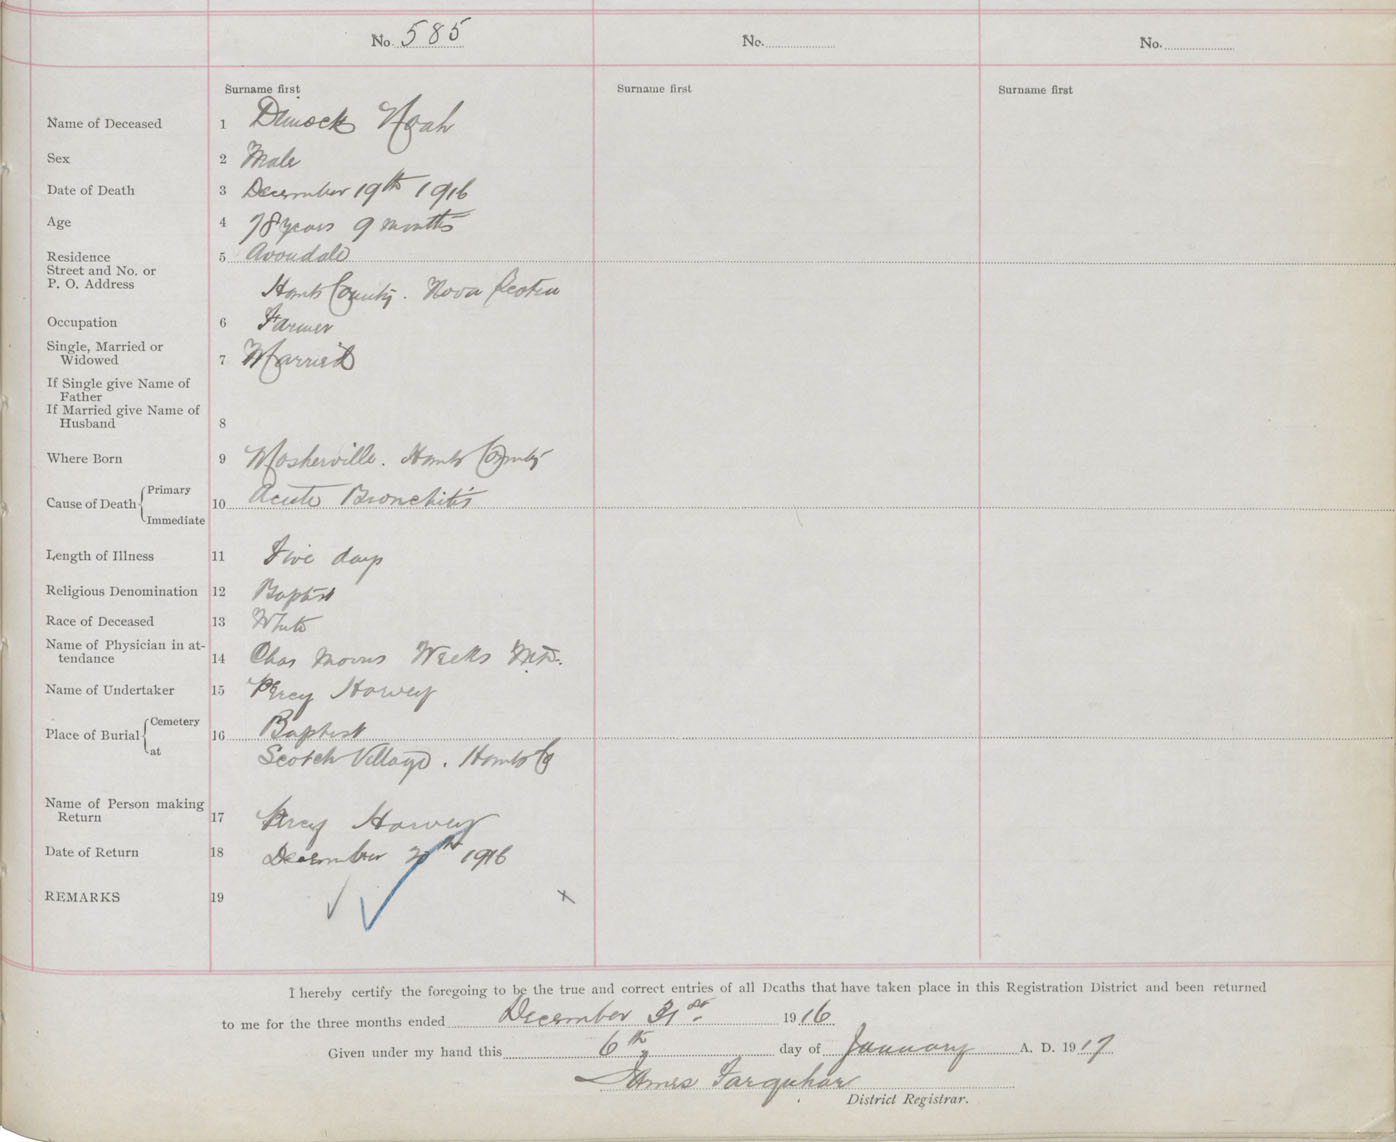 No. 585 No. No.
Surname first Surname first Surname first
Name of Deceased 1 Dimock Noah
Sex 2 Male
Date of Death 3 December 19th 1916
Age 4 78 years 9 months
Residence 5 Avondale
Street and No. or
P. O. Address Hants County. Nova Scotia
Occupation 6 Farmer
Single, Married or
Widowed 7 Married
If Single give Name of
Father
If Married give Name of
Husband 8
Where Born 9 Mosherville. Hants County
Cause of Death Primary 10 Acute Bronchitis
Immediate
Length of Illness 11 Five days
Religious Denomination 12 Baptist
Race of Deceased 13 White
Name of Physician in at-
tendance 14 Chas Morris Weeks M.D.
Name of Undertaker 15 Percy Harvey
Place of Burial Cemetery 16 Baptist
at Scotch Village. Hants Co
Name of Person making
Return 17 Percy Harvey
Date of Return 18 December 20th 1916
REMARKS 19
I hereby certify the foregoing to be the true and correct entries of all Deaths that have taken place in this Registration District and been returned
to me for the three months ended December 31st 1916
Given under my hand this 6th day of January A. D. 1917
James Farquhar
District Registrar.